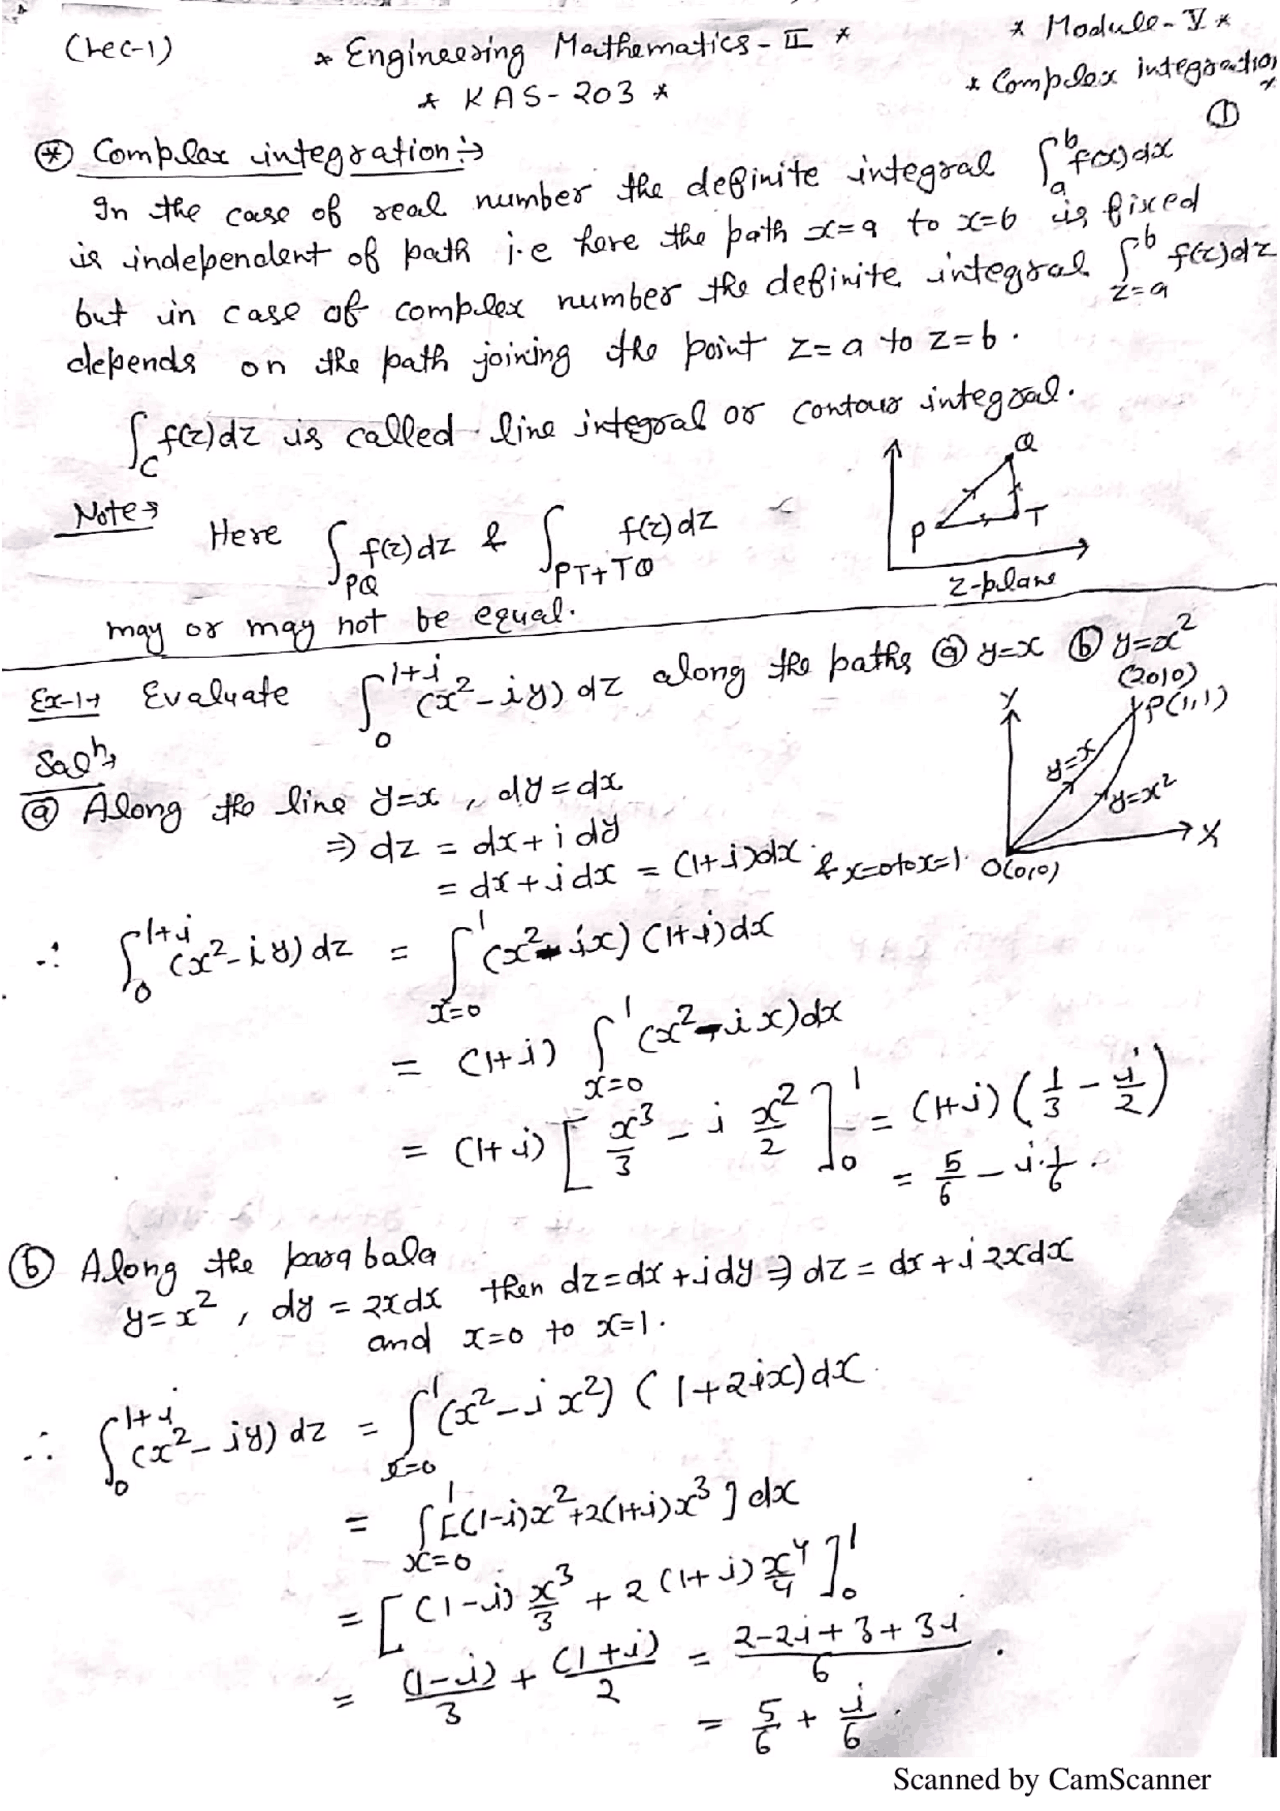 (Lec-1)
* Engineering Mathematics-II *
* Module-V *
* KAS-203 *
* Complex integration *
①
⊛ Complex integration :→
In the case of real number the definite integral ∫_a^b f(x)dx
is independent of path i.e here the path x=a to x=b is fixed
but in case of complex number the definite integral ∫_{z=a}^b f(z)dz
depends on the path joining the point z=a to z=b.
∫_C f(z)dz is called line integral or contour integral.
Note→ Here ∫_{PQ} f(z)dz & ∫_{PT+TQ} f(z)dz
may or may not be equal.
Q
P
T
Z-plane
Ex-1→ Evaluate ∫_0^{1+i} (x²-iy) dz along the paths ⓐ y=x ⓑ y=x²
(2010)
Y
P(1,1)
y=x
y=x²
X
O(0,0)
Solⁿ→
ⓐ Along the line y=x, dy=dx
⇒ dz = dx+i dy
= dx+i dx = (1+i)dx & x=0 to x=1.
∴ ∫_0^{1+i} (x²-iy) dz = ∫_{x=0}^1 (x²-ix) (1+i)dx
= (1+i) ∫_{x=0}^1 (x²-ix)dx
= (1+i) [x³/3 - i x²/2]_0^1 = (1+i) (1/3 - i/2)
= 5/6 - i·1/6.
ⓑ Along the parabala
y=x², dy = 2xdx then dz=dx+idy ⇒ dz = dx+i2xdx
and x=0 to x=1.
∴ ∫_0^{1+i} (x²-iy) dz = ∫_{x=0}^1 (x²-ix²) (1+2ix)dx.
= ∫_{x=0}^1 [(1-i)x²+2(1+i)x³] dx
= [(1-i) x³/3 + 2(1+i) x⁴/4]_0^1
= (1-i)/3 + (1+i)/2 = (2-2i+3+3i)/6.
= 5/6 + i/6.
Scanned by CamScanner